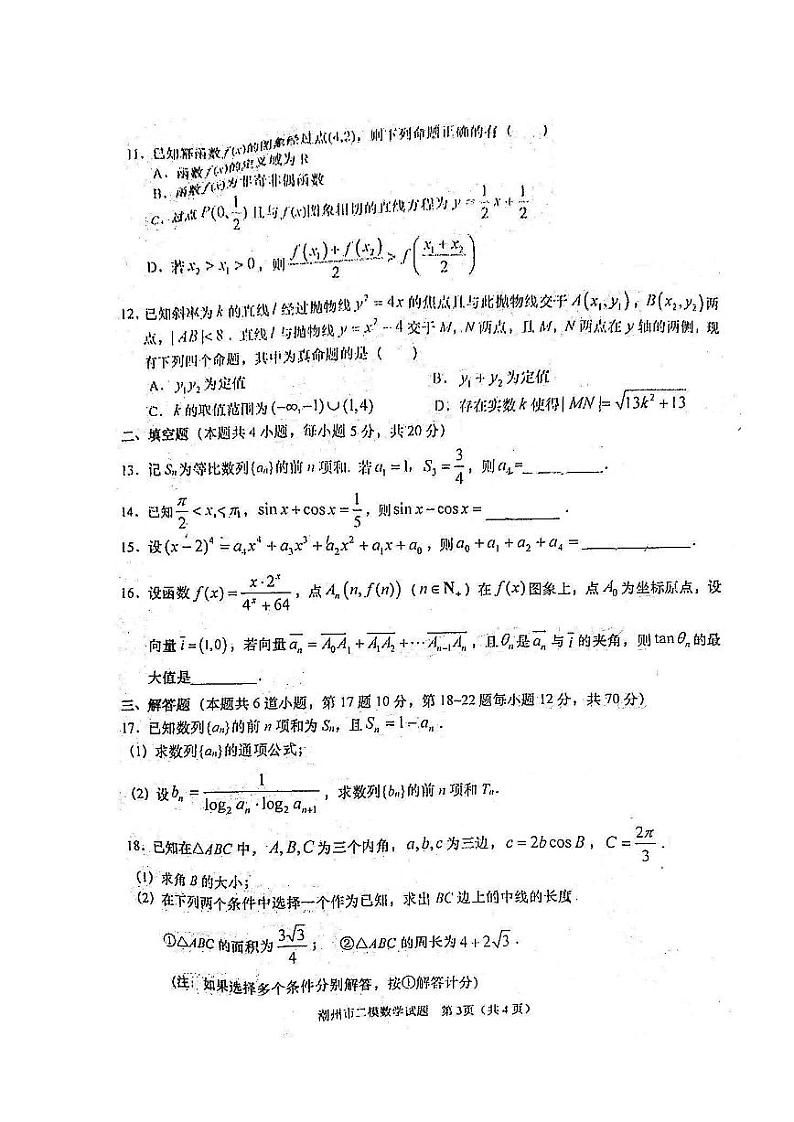 11. 已知幂函数f(x)的图象经过点(4,2), 则下列命题正确的有 (    )
A. 函数f(x)的定义域为 R
B. 函数f(x)为非奇非偶函数
C. 过点 P(0, 1/2) 且与 f(x)图象相切的直线方程为 y = 1/2 x + 1/2
D. 若 x₂ > x₁ > 0, 则 (f(x₁)+f(x₂))/2 > f((x₁+x₂)/2)
12. 已知斜率为 k 的直线 l 经过抛物线 y² = 4x 的焦点且与此抛物线交于 A(x₁,y₁), B(x₂,y₂) 两
点, |AB|<8. 直线 l 与抛物线 y = x² - 4 交于 M, N 两点, 且 M, N 两点在 y 轴的两侧, 现
有下列四个命题, 其中为真命题的是 (    )
A. y₁y₂ 为定值 B. y₁ + y₂ 为定值
C. k 的取值范围为 (-∞,-1)∪(1,4) D. 存在实数 k 使得 |MN| = √(13k² +13)
二、填空题 (本题共 4 小题, 每小题 5 分, 共 20 分)
13. 记 Sn 为等比数列{an}的前 n 项和. 若 a₁ = 1, S₃ = 3/4, 则 a₄=________.
14. 已知 π/2 < x < π, sin x + cos x = 1/5, 则 sin x − cos x = ________.
15. 设 (x−2)⁴ = a₄x⁴ + a₃x³ + a₂x² + a₁x + a₀, 则 a₀ + a₁ + a₂ + a₄ = ________.
16. 设函数 f(x) = x·2ˣ/(4ˣ + 64), 点 Aₙ(n, f(n)) (n∈N₊) 在 f(x) 图象上, 点 A₀ 为坐标原点, 设
向量 i = (1,0), 若向量 aₙ = A₀A₁ + A₁A₂ + ⋯Aₙ₋₁Aₙ, 且 θₙ 是 aₙ 与 i 的夹角, 则 tan θₙ 的最
大值是________.
三、解答题 (本题共 6 道小题, 第 17 题 10 分, 第 18~22 题每小题 12 分, 共 70 分)
17. 已知数列{an}的前 n 项和为 Sn, 且 Sₙ = 1 − aₙ.
(1) 求数列{an}的通项公式;
(2) 设 bₙ = 1/(log₂ aₙ · log₂ aₙ₊₁), 求数列{bn}的前 n 项和 Tn.
18. 已知在△ABC 中, A,B,C 为三个内角, a,b,c 为三边, c = 2b cos B, C = 2π/3.
(1) 求角 B 的大小;
(2) 在下列两个条件中选择一个作为已知, 求出 BC 边上的中线的长度.
①△ABC 的面积为 3√3/4; ②△ABC 的周长为 4 + 2√3.
(注: 如果选择多个条件分别解答, 按①解答计分)
潮州市二模数学试题 第 3页 (共 4 页)